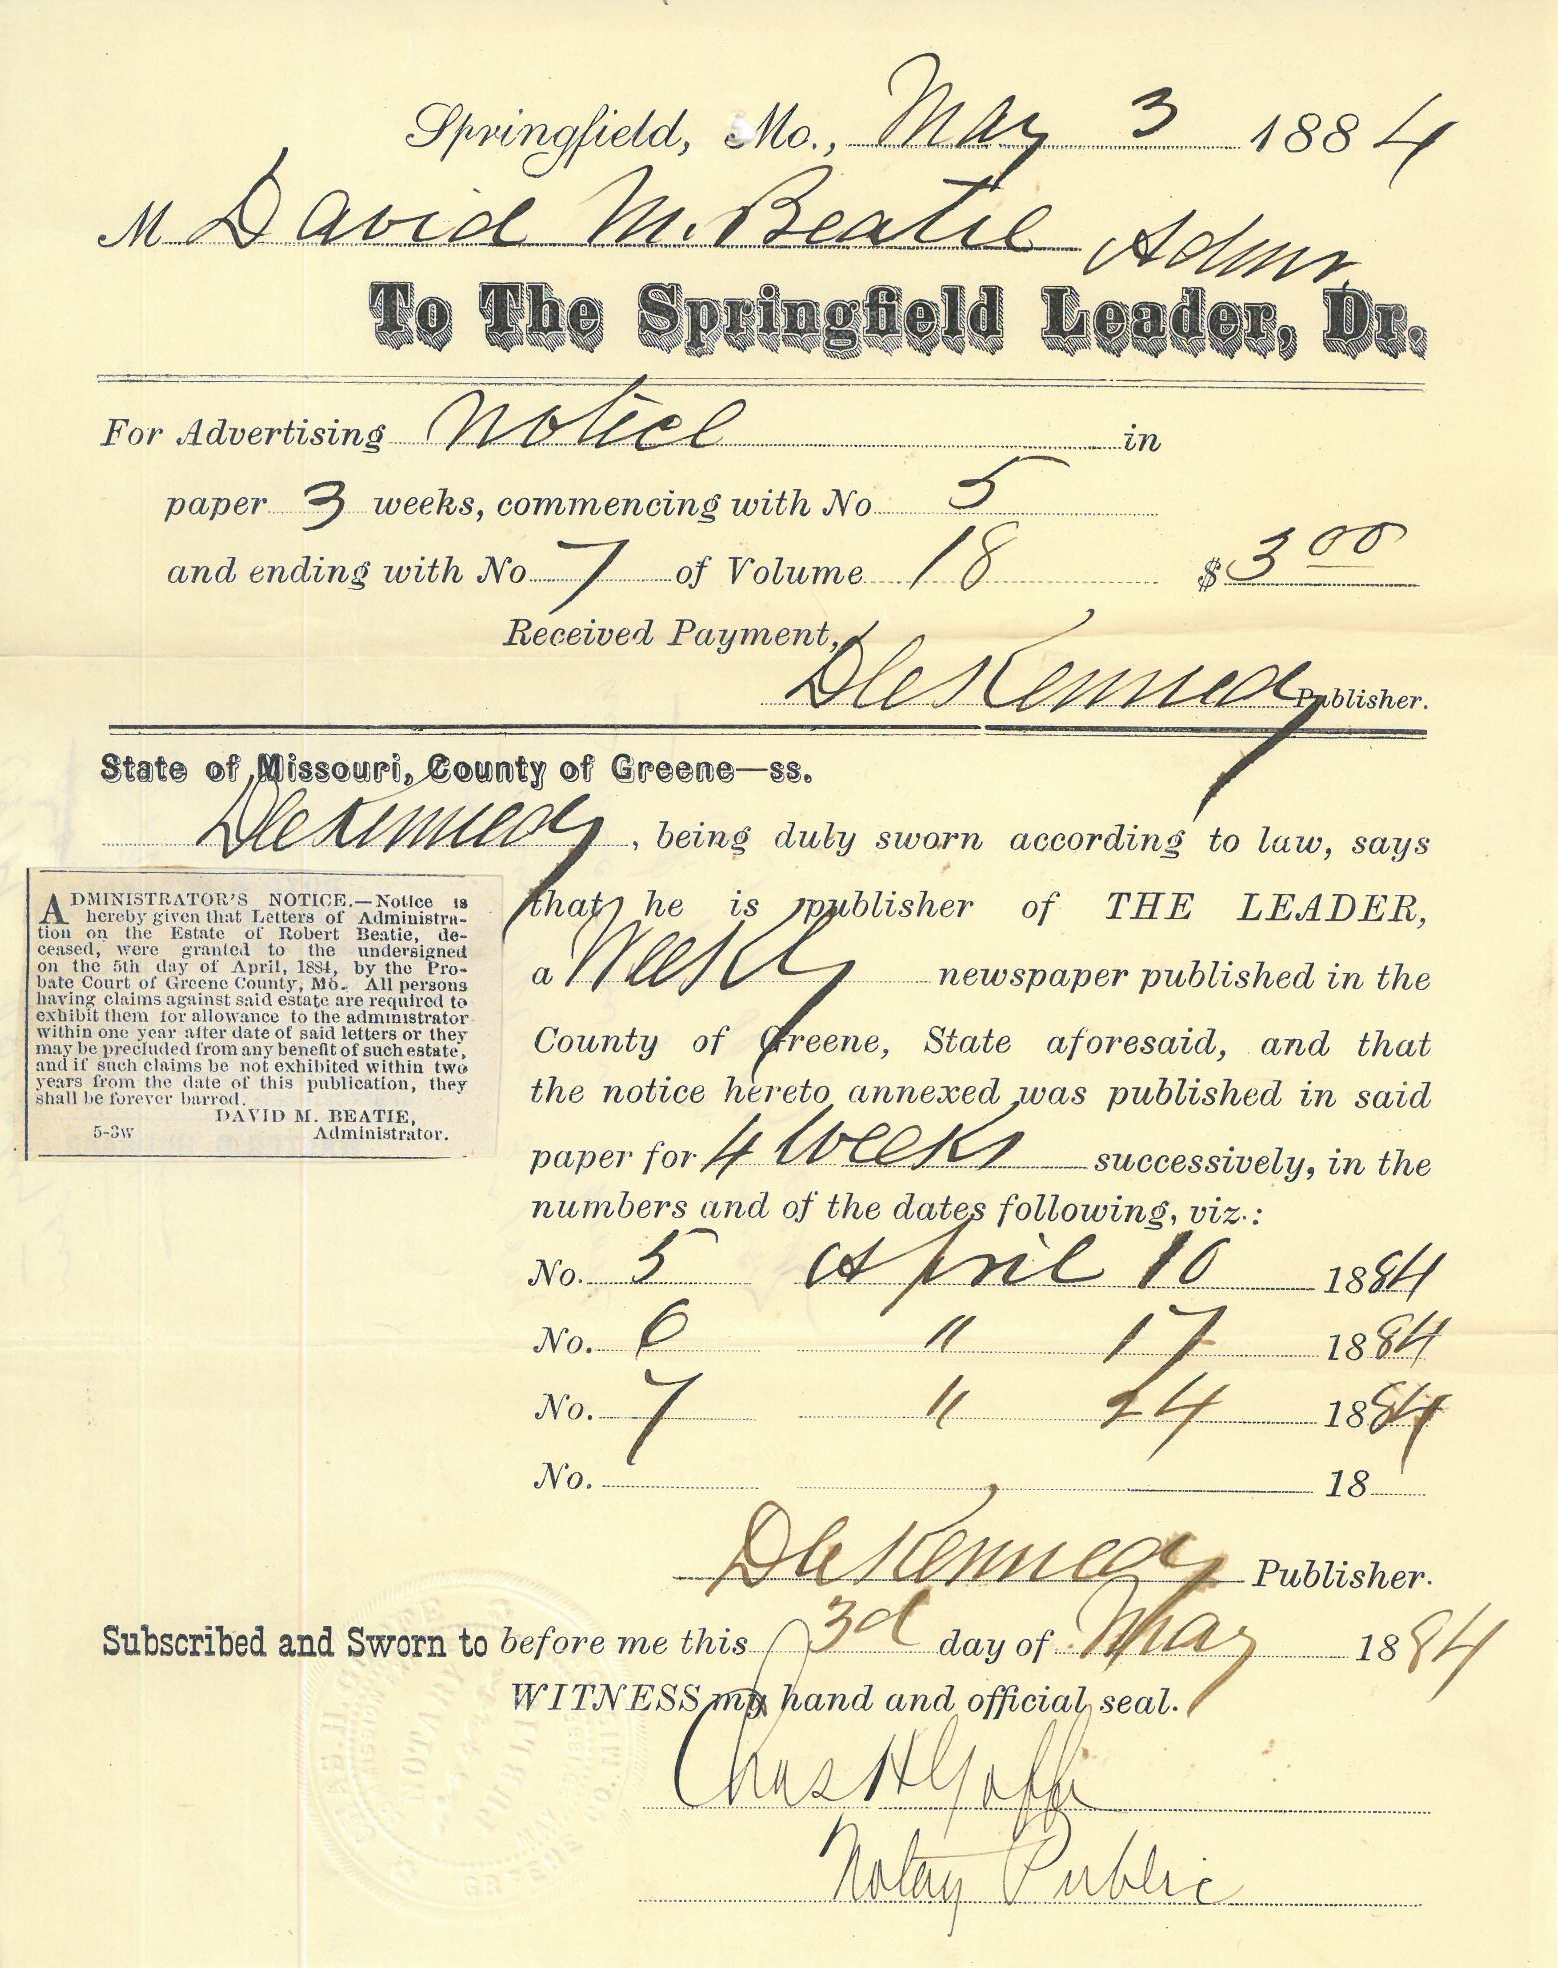 Springfield, Mo., May 3 1884
M David M. Beatie Admr.
To The Springfield Leader, Dr.
For Advertising Notice in
paper 3 weeks, commencing with No 5
and ending with No 7 of Volume 18 $3 00
Received Payment,
D C Kennedy Publisher.
State of Missouri, County of Greene—ss.
D C Kennedy, being duly sworn according to law, says
that he is publisher of THE LEADER,
a Weekly newspaper published in the
County of Greene, State aforesaid, and that
the notice hereto annexed was published in said
paper for 4 Weeks successively, in the
numbers and of the dates following, viz.:
No. 5 April 10 1884
No. 6 " 17 1884
No. 7 " 24 1884
No. 18
ADMINISTRATOR'S NOTICE.—Notice is
hereby given that Letters of Administra-
tion on the Estate of Robert Beatie, de-
ceased, were granted to the undersigned
on the 5th day of April, 1884, by the Pro-
bate Court of Greene County, Mo. All persons
having claims against said estate are required to
exhibit them for allowance to the administrator
within one year after date of said letters or they
may be precluded from any benefit of such estate,
and if such claims be not exhibited within two
years from the date of this publication, they
shall be forever barred.
DAVID M. BEATIE,
5-3w Administrator.
D C Kennedy Publisher.
Subscribed and Sworn to before me this 3d day of May 1884
WITNESS my hand and official seal.
Chas H Goffe
Notary Public
NOTARY
PUBLIC
GREENE CO.